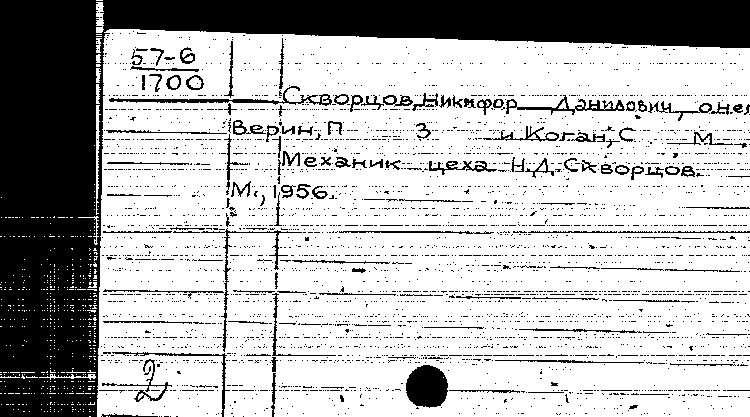 57-6
1700
Скворцов, Никифор Данилович, о нем
Верин, П З и Коган, С М.
Механик цеха Н.Д. Скворцов.
М., 1956.
2